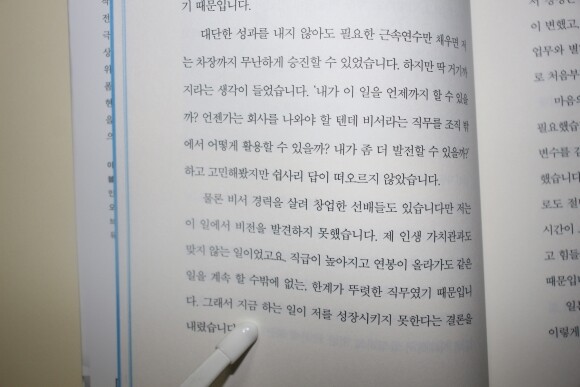 기 때문입니다.
대단한 성과를 내지 않아도 필요한 근속연수만 채우면 저
는 차장까지 무난하게 승진할 수 있었습니다. 하지만 딱 거기까
지라는 생각이 들었습니다. '내가 이 일을 언제까지 할 수 있을
까? 언젠가는 회사를 나와야 할 텐데 비서라는 직무를 조직 밖
에서 어떻게 활용할 수 있을까? 내가 좀 더 발전할 수 있을까?'
하고 고민해봤지만 쉽사리 답이 떠오르지 않았습니다.
물론 비서 경력을 살려 창업한 선배들도 있습니다만 저는
이 일에서 비전을 발견하지 못했습니다. 제 인생 가치관과도
맞지 않는 일이었고요. 직급이 높아지고 연봉이 올라가도 같은
일을 계속 할 수밖에 없는, 한계가 뚜렷한 직무였기 때문입니
다. 그래서 지금 하는 일이 저를 성장시키지 못한다는 결론을
내렸습니다
이 변했고,
업무와 별
로 처음부
마음의
필요했습
변수를 감
했습니다
로도 절
시간이
고 힘들
이렇게